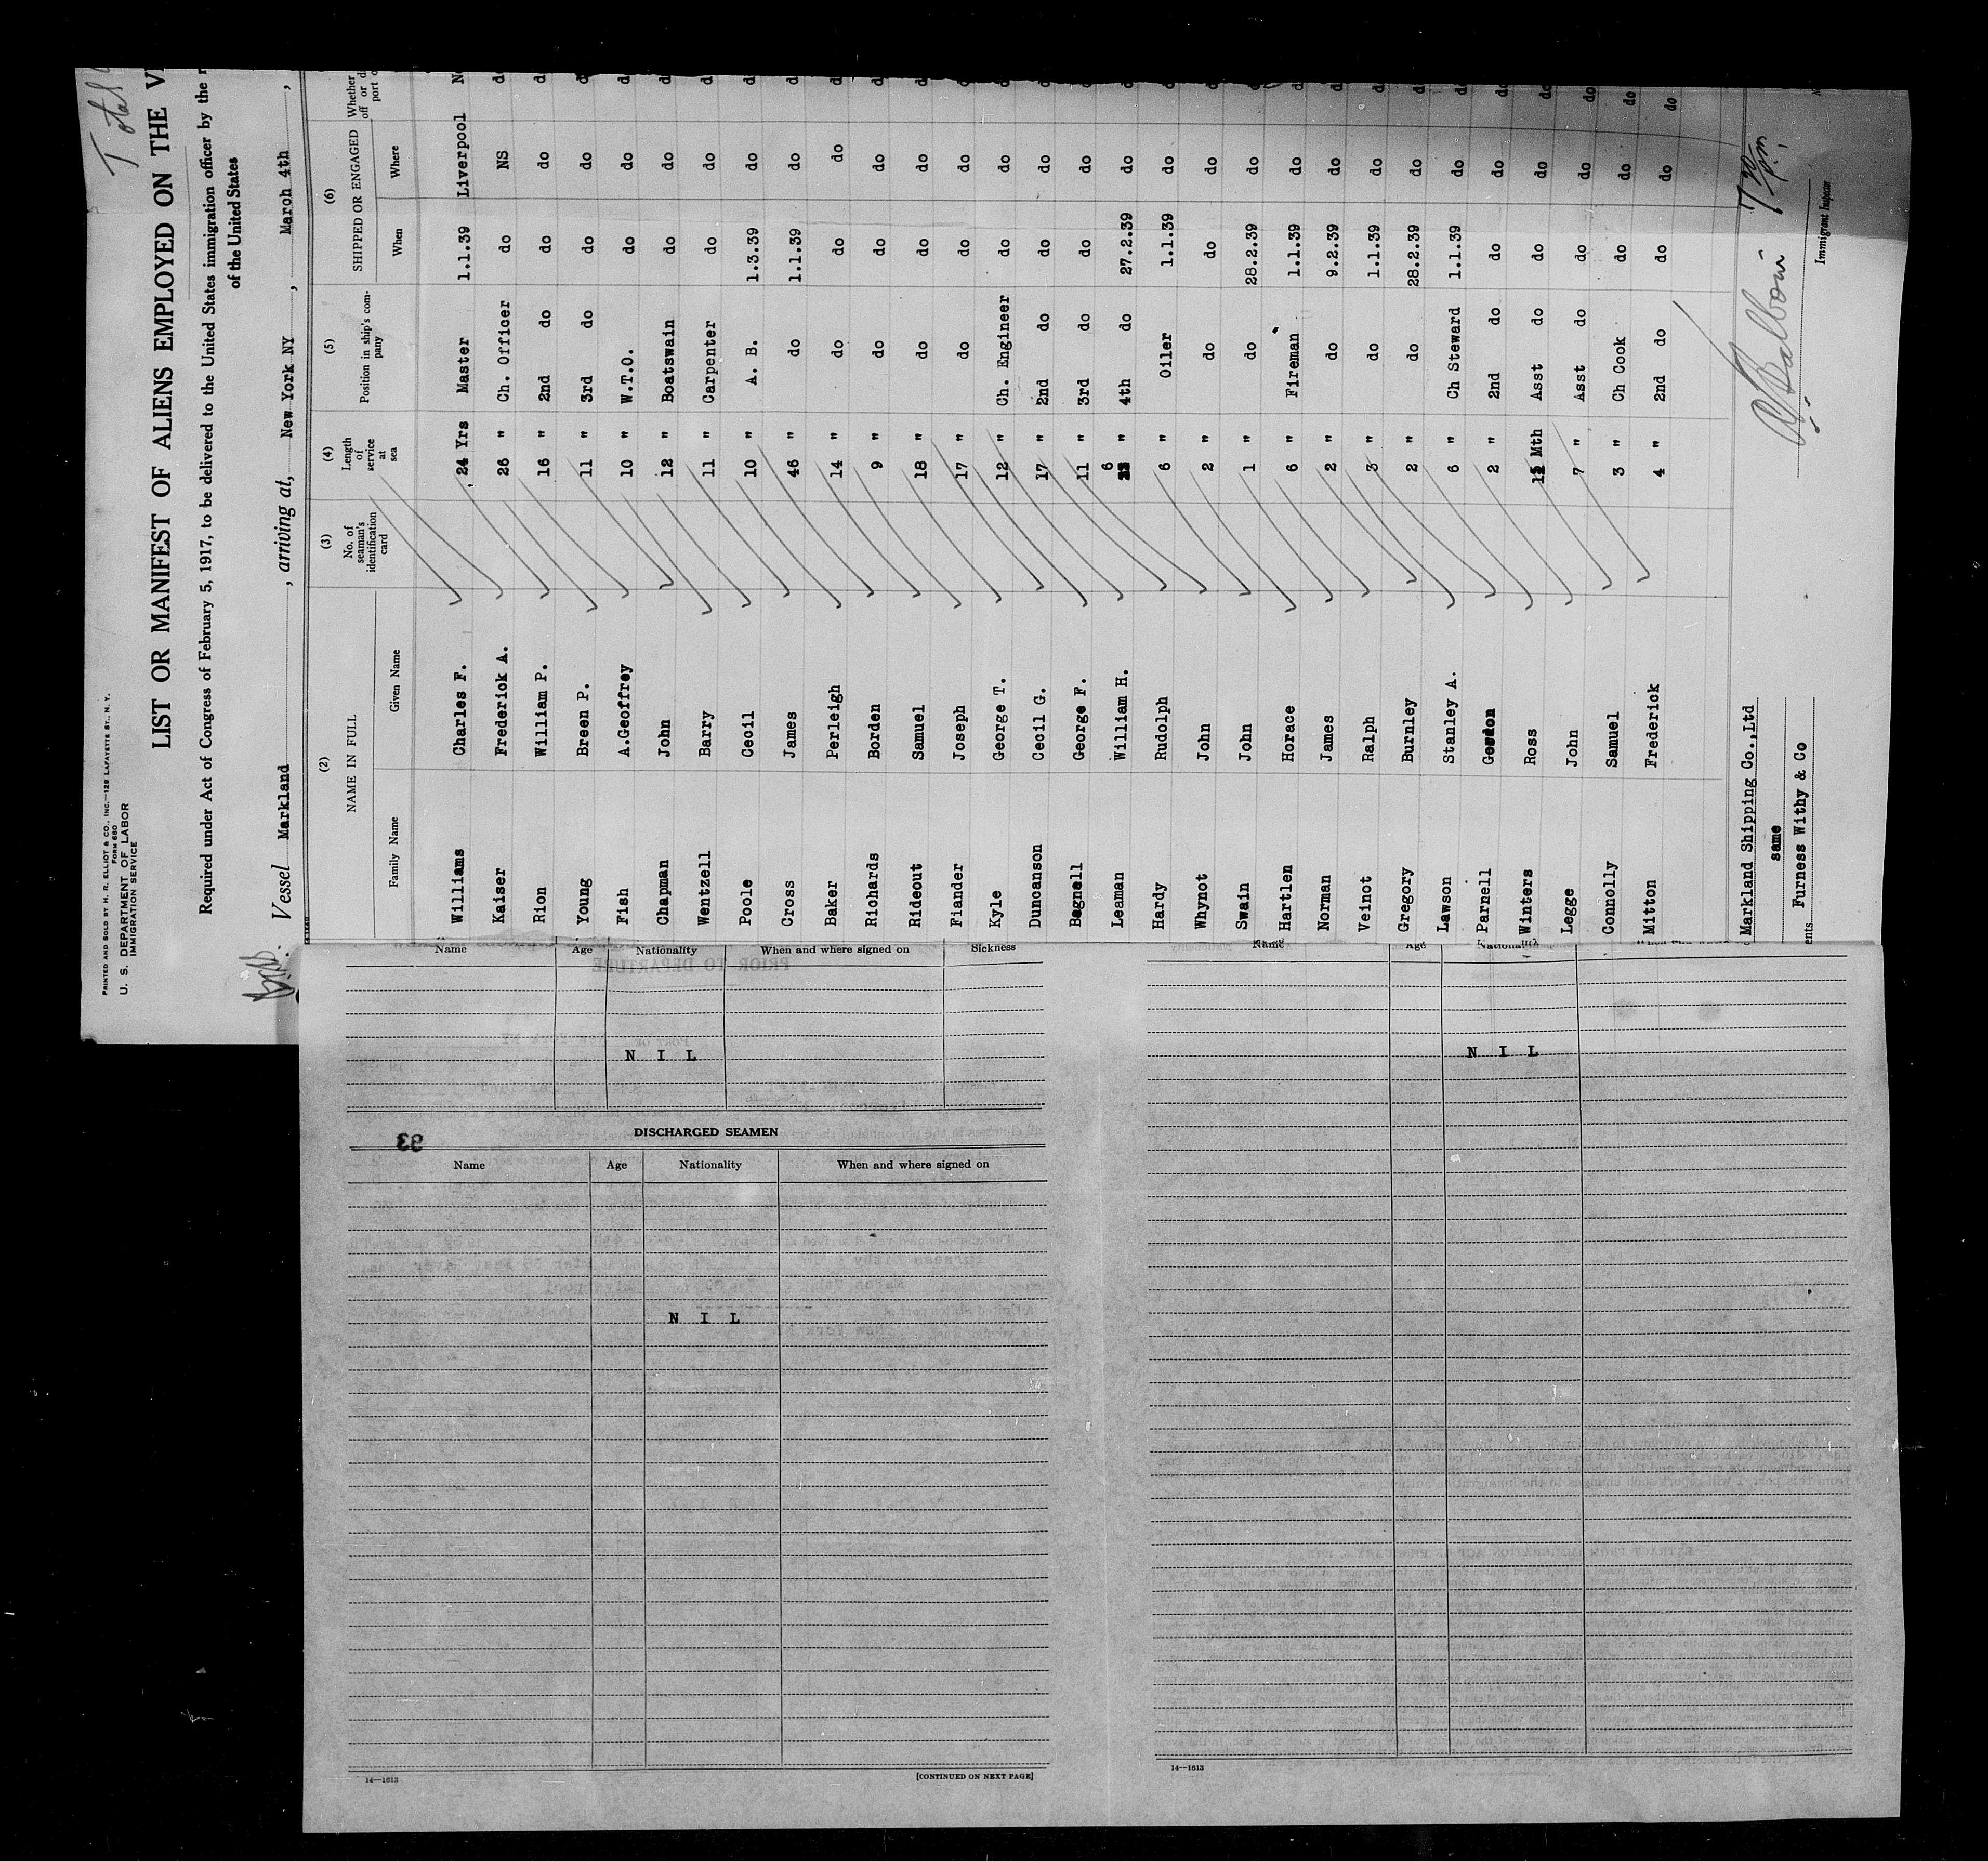 Total
PRINTED AND SOLD BY H. R. ELLIOT & CO., INC.—129 LAFAYETTE ST., N. Y.
FORM 680
U. S. DEPARTMENT OF LABOR
IMMIGRATION SERVICE
LIST OR MANIFEST OF ALIENS EMPLOYED ON THE
Required under Act of Congress of February 5, 1917, to be delivered to the United States immigration officer by the
of the United States
Vessel Markland , arriving at, New York NY , March 4th ,
(2) (3) (4) (5) (6)
NAME IN FULL No. of seaman's identification card Length of service at sea Position in ship's company SHIPPED OR ENGAGED Whether
Family Name Given Name When Where
Williams Charles F. 24 Yrs Master 1.1.39 Liverpool
Kaiser Frederick A. 26 " Ch. Officer do NS
Rion William P. 16 " 2nd do do do
Young Breen P. 11 " 3rd do do do
Fish A.Geoffrey 10 " W.T.O. do do
Chapman John 12 " Boatswain do do
Wentzell Barry 11 " Carpenter do do
Poole Cecil 10 " A. B. 1.3.39 do
Cross James 46 " do 1.1.39 do
Baker Perleigh 14 " do do do
Richards Borden 9 " do do do
Rideout Samuel 18 " do do do
Fiander Joseph 17 " do do do
Kyle George T. 12 " Ch. Engineer do do
Dunoanson Cecil G. 17 " 2nd do do do
Bagnell George F. 11 " 3rd do do do
Leaman William H. 6 " 4th do 27.2.39 do
Hardy Rudolph 6 " Oiler 1.1.39 do
Whynot John 2 " do do do
Swain John 1 " do 28.2.39 do
Hartlen Horace 6 " Fireman 1.1.39 do
Norman James 2 " do 9.2.39 do
Veinot Ralph 3 " do 1.1.39 do
Gregory Burnley 2 " do 28.2.39 do
Lawson Stanley A. 6 " Ch Steward 1.1.39 do
Parnell Gordon 2 " 2nd do do do
Winters Ross Mth Asst do do do
Legge John 7 " Asst do do do
Connolly Samuel 3 " Ch Cook do do
Mitton Frederick 4 " 2nd do do do
Markland Shipping Co.,Ltd
same
Furness Withy & Co
7 30 p.m.
Immigrant Inspector
Name Age Nationality When and where signed on Sickness
N I L
DISCHARGED SEAMEN
93
Name Age Nationality When and where signed on
N I L
14—1613
[CONTINUED ON NEXT PAGE]
Name Age Nationality
N I L
14—1613